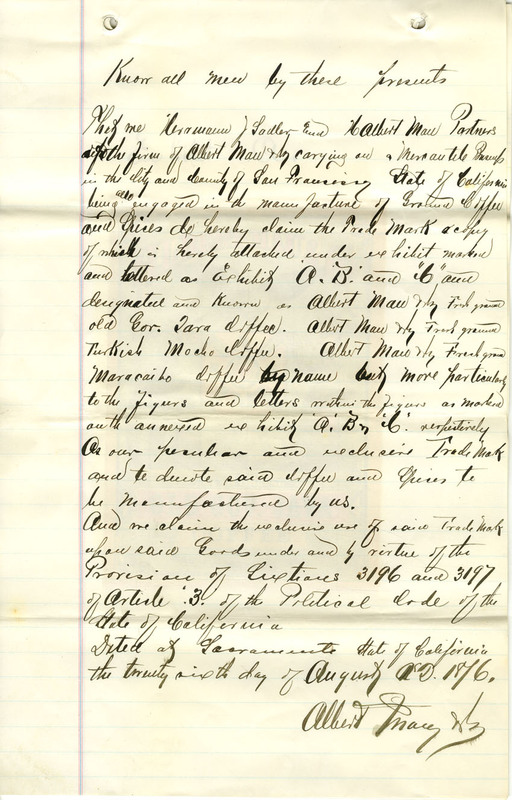 Know all men by these presents
That we Herrmann J Sadler and Albert Mau Partners
of the firm of Albert Mau & Co carrying on a Mercantile Business
in the City and County of San Francisco State of California
being also engaged in the manufacture of Ground Coffee
and Spices do hereby claim the Trade Mark a copy
of which is hereby attached under exhibit marked
and lettered as Exhibit A. B. and "C" and
designated and known as Albert Mau & Co Fresh ground
old Gov. Java Coffee. Albert Mau & Co Fresh ground
Turkish Mocho Coffee. Albert Mau & Co Fresh ground
Maracaibo Coffee by name but more particularly
to the figures and letters within the figures as marked
on the annexed exhibit "A. B. & C." respectively
As our peculiar and exclusive Trade Mark
and to denote said Coffee and Spices to
be manufactured by us.
And we claim the exclusive use of said Trade Mark
upon said Goods under and by virtue of the
Provision of Sections 3196 and 3197
of Article .3. of the Political Code of the
State of California
Dated at Sacramento State of California
the twenty sixth day of August A.D. 1876.
Albert Mau & Co